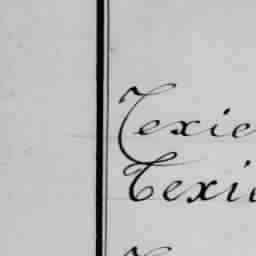 Texie
Texie